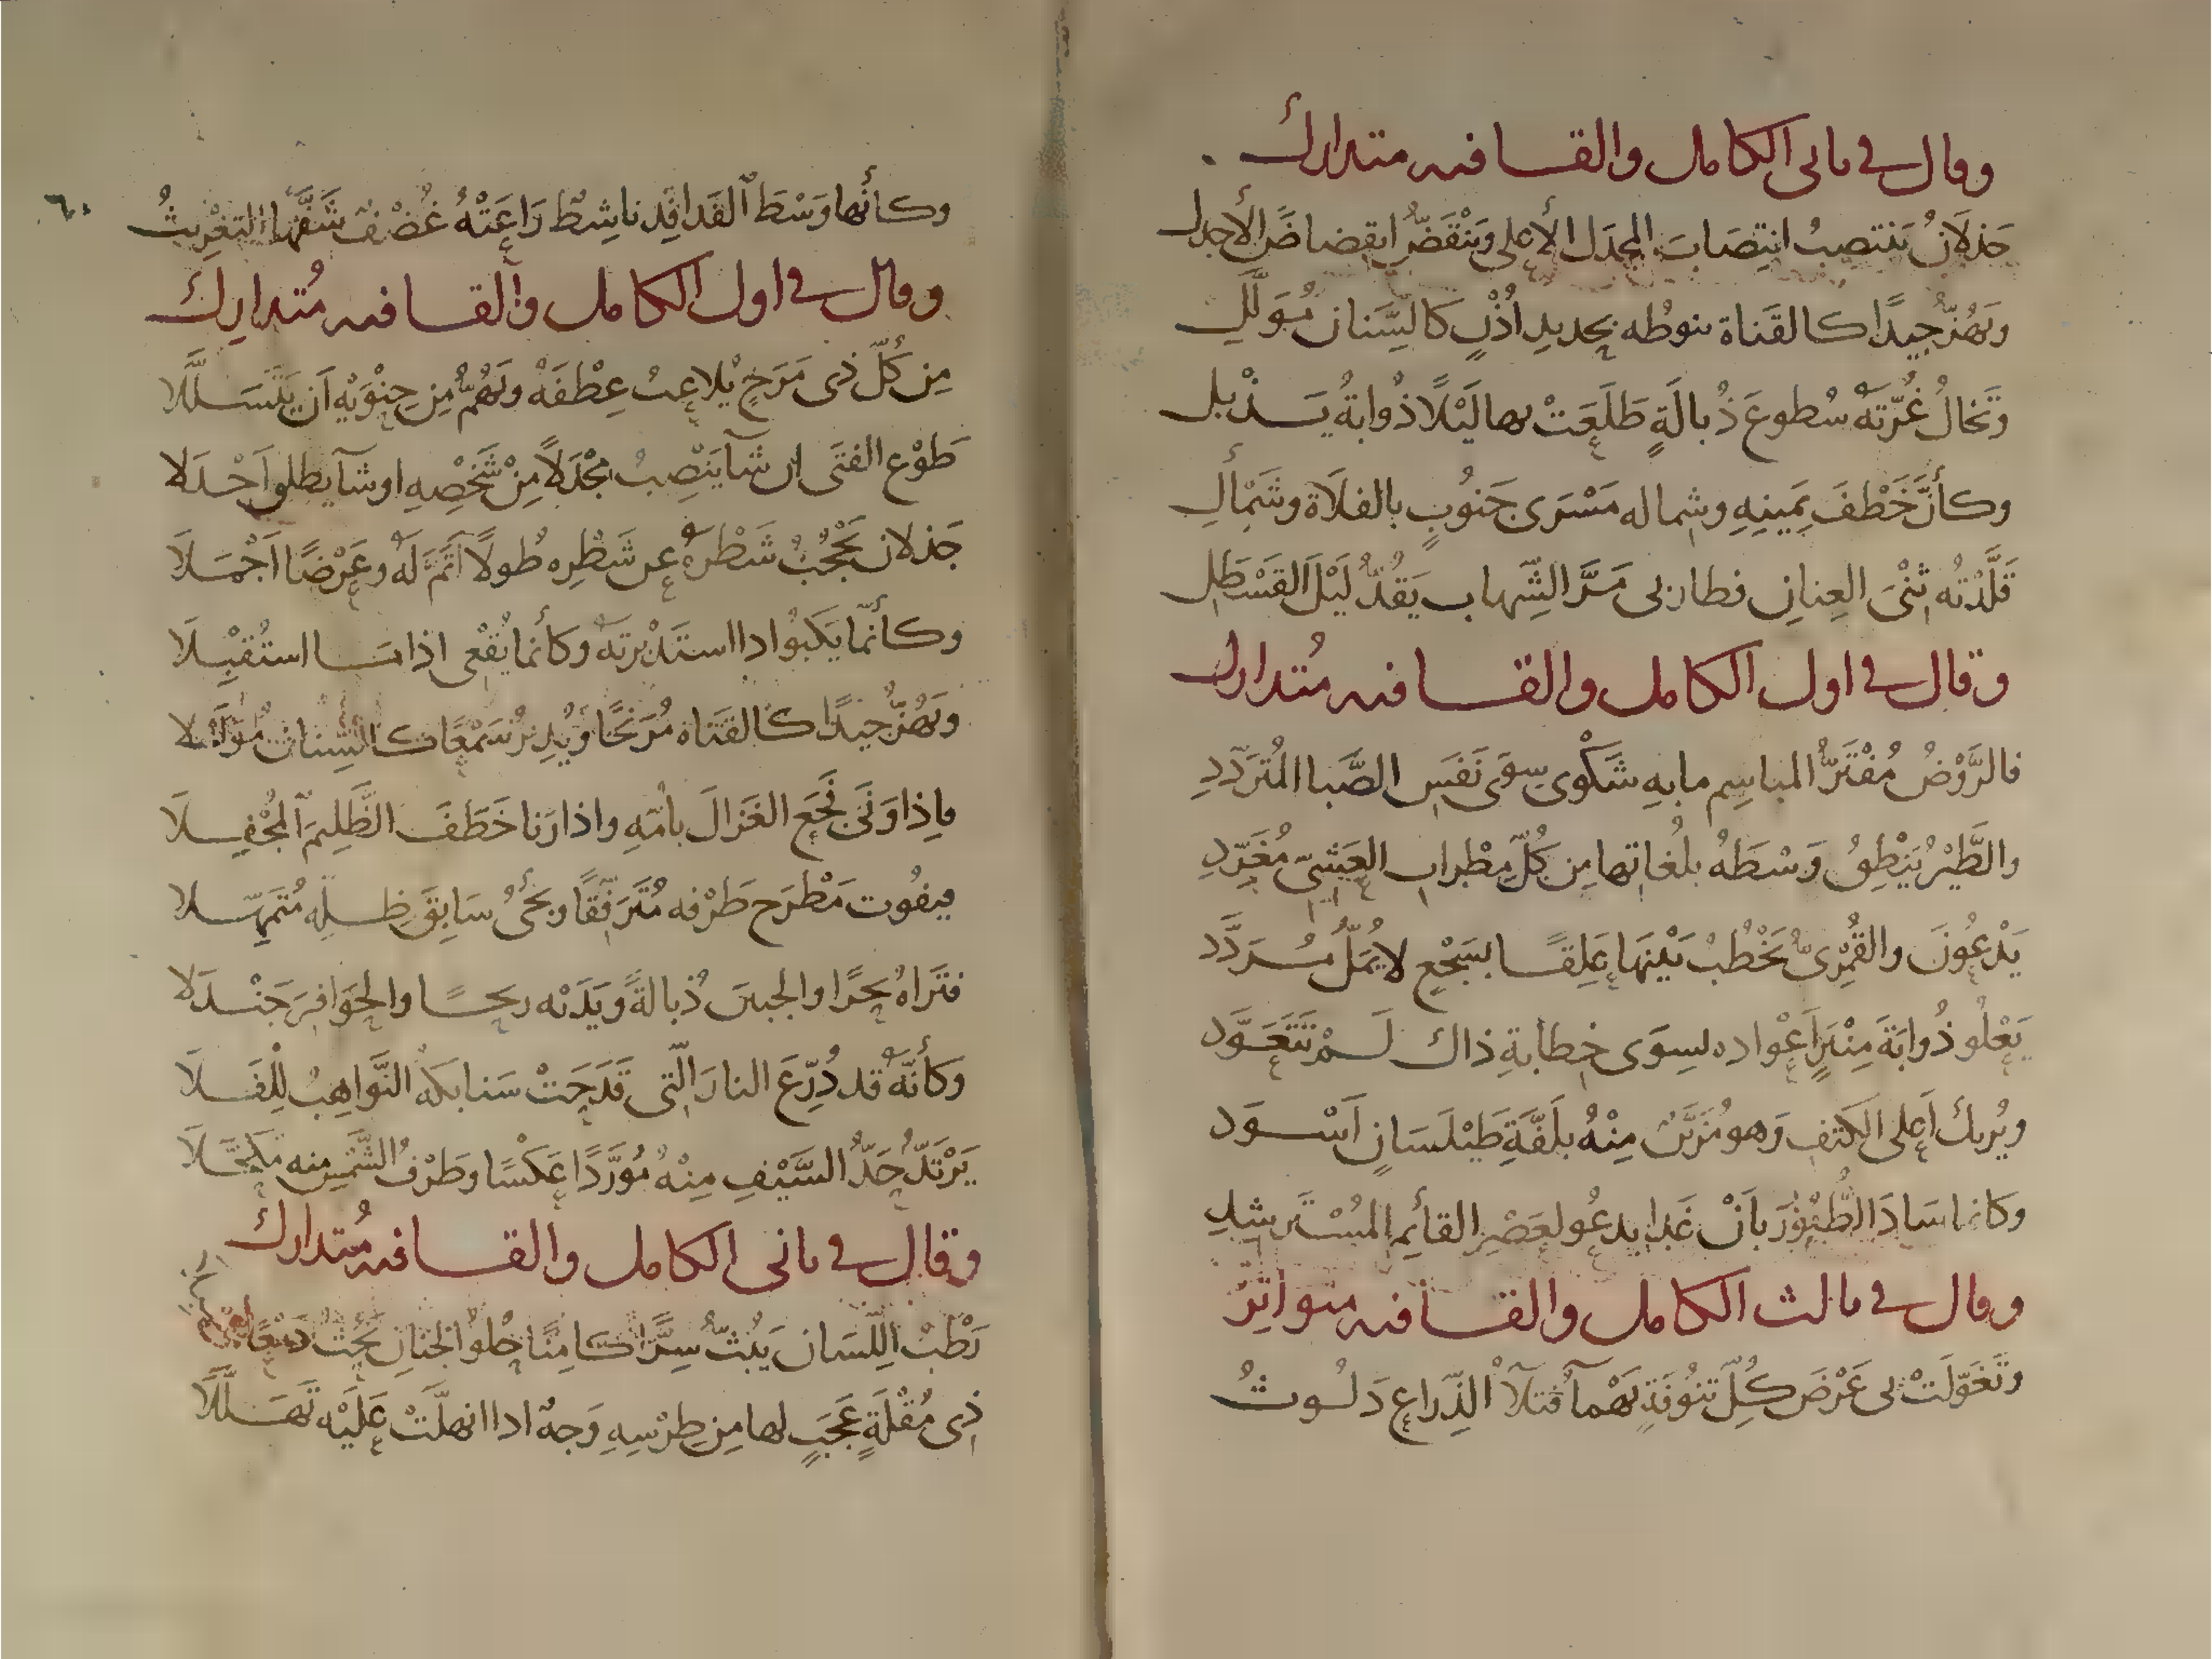 وقال في ثاني الكامل والقافيه متدارك
جَذلَانُ يَنتصِبُ انتِصَابَ المِجدَل الأعلى وَيَنْقَضُّ انقِضاضَ الأجدل
ويَهُزُّ جِيدًا كالقَناة ينوطُه بحديدِ اُذْنٍ كَالسِّنان مُوَلَّلِ
وتَخالُ غُرّتهُ سُطوعَ ذُبالَةٍ طَلَعَتْ بها لَيْلًا ذُوابةُ يَذْبل
وكأنَّ خَطْفَ يَمِينِهِ وشِماله مَسْرَى جَنوُبٍ بالفلَاة وشَمْألِ
قَلَّدْتُه ثِنْىَ العِنانِ فطار بى مَرَّ الشِّهاب يَقُدُّ لَيْلَ القَسْطَلِ
وقال في اول الكامل والقافيه مُتدارك
فالرَّوْضُ مُفْتَرُّ المباسِم مابهِ شَكْوى سِوَى نَفَسِ الصَّبا المُتَرَدّدِ
والطَّيْرُ يَنْطِقُ وَسْطَهُ بلُغاتِها مِن كُلّ مِطْرابِ العَشِىّ مُغَرّدِ
يَدْعُونَ والقُمْرِىُّ يَخْطُبُ بَيْنَهَا عَلِقًا بسَجْعٍ لا يُمَلُّ مُرَدَّد
يَعْلُو ذُوابَةَ مِنْبَرٍ اَعْواده لسِوَى خِطابةِ ذاك لَمْ تَتَعَوَّد
ويُريك اَعلى الكَتفِ وَهو مُزَيَّنٌ مِنْهُ بلَفَّةِ طَيْلَسَانٍ اَسْوَد
وكانما سَادَ الطُّيُورَ بأنْ غَدا يدعُو لعَصْرِ القائِمِ المُسْتَرشِدِ
وقال في ثالث الكامل والقافيه متواتِرٌ
وتَغَوّلَتْ بى عَرْضَ كُلِّ تنُوفَةٍ يَهْمآ فَتلآ الذِّراع دَلُوثُ
٦٠
وكأنّها وَسْطَ الفَدافِدِ ناشِطٌ رَاعَتْهُ غُضْفٌ شَفَّها التغرِيثُ
وقال في اول الكامل والقافيه مُتدارِك
مِن كُلّ ذى مَرَحٍ يُلاعِبُ عِطْفَهُ ويَهُمُّ مِن جِنْوَيْهِ اَن يَتَسَلَّلا
طَوْع الفتَى ان شآ يَنْصِبُ مِجْدَلاً مِنْ شَخْصِهِ اوشآ يطلو اَجْدَلا
جَذلان يَحْجُبُ شَطْرهُ عن شَطْرِه طُولًا اَتَمَّ لَهُ وعَرْضًا اَجْمَلاَ
وكأنّما يَكبُو اذا استَدْبرتَهُ وكأنما يُقْعى اذا ما استُقبِلَا
ويَهُزُّ جيدًا كالقَنَاة مُرَنَّحًا ويُدِيرُ سَمْعًا كالسِّنان مُوَلَّلا
فاِذا وَنَى فَجَع الغَزالَ بأمّهِ واذا رَنا خَطَفَ الظَّلِيمَ المُجْفِلَا
فيفُوت مَطْرَح طَرْفه مُتَرَفّقًا ويَجئُ سَابِقَ ظِلّه مُتَمَهّلا
فتَرَاهُ بَحرًا والجبينَ ذُبالةً ويَدَيْه ريحًا والحَوَافِرَ جَنْدَلا
وَكَأنّهُ قد دُرِّعَ النارَ الّتى قَدَحَتْ سَنابكه النَّواهِبُ لِلْفَلاَ
يَرْتَدُّ حَدُّ السَّيْفِ مِنْهُ مُوَرَّدًا عَكْسًا وطَرْفُ الشَّمْسِ منه مكَحَّلاَ
وقال في ثانى الكامل والقافيه مُتدارك
رَطْبُ اللِّسَان يَبُثُّ سِرًّا كامِنًا حُلوُ الجَنانِ يَمُجُّ
ذِى مُقْلَةٍ عَجَبٍ لها مِن طِرْسِهِ وَجهٌ اذا انهلَّتْ عَلَيْه تَهَلَّلَا